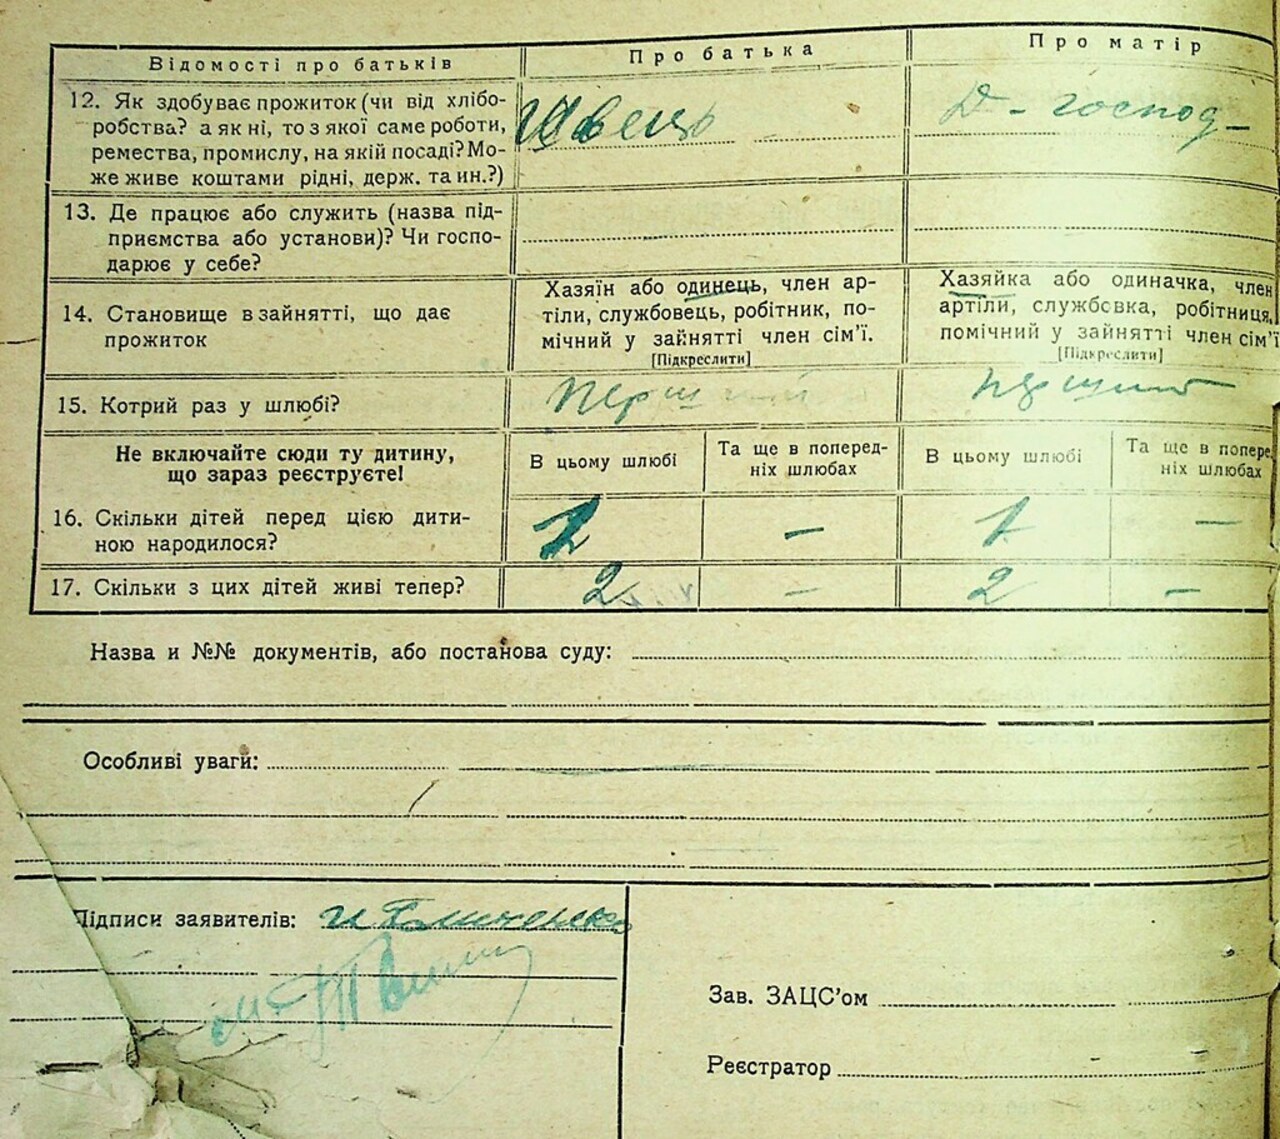 Відомості про батьків
Про батька
Про матір
12. Як здобуває прожиток (чи від хлібо-
робства? а як ні, то з якої саме роботи,
ремества, промислу, на якій посаді? Мо-
же живе коштами рідні, держ. та ин.?)
Швець
Д-господ-
13. Де працює або служить (назва під-
приємства або установи)? Чи госпо-
дарює у себе?
14. Становище в зайнятті, що дає
прожиток
Хазяїн або одинець, член ар-
тіли, службовець, робітник, по-
мічний у зайнятті член сім'ї.
[Підкреслити]
Хазяйка або одиначка, член
артіли, службовка, робітниця,
помічний у зайнятті член сім'ї
[Підкреслити]
15. Котрий раз у шлюбі?
перший
Не включайте сюди ту дитину,
що зараз реєструєте!
В цьому шлюбі
Та ще в поперед-
ніх шлюбах
В цьому шлюбі
Та ще в попере
ніх шлюбах
16. Скільки дітей перед цією дити-
ною народилося?
–
1
–
17. Скільки з цих дітей живі тепер?
2
–
2
–
Назва и №№ документів, або постанова суду:
Особливі уваги:
Підписи заявителів:
Зав. ЗАЦС'ом
Реєстратор